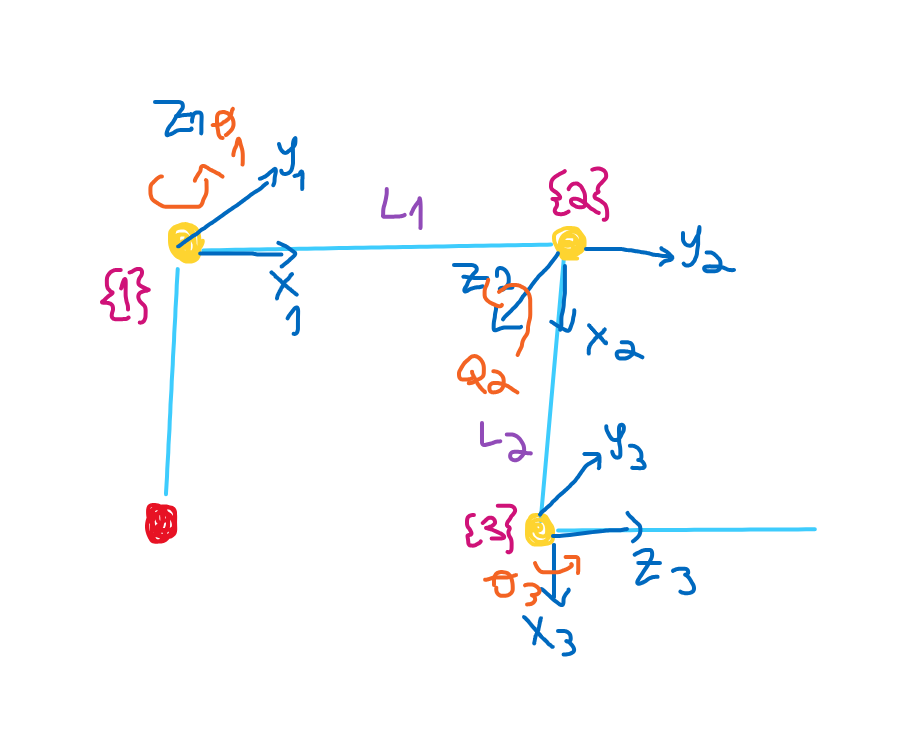 Z1 θ1
y1
L1
{2}
y2
{1}
x1
Z2
x2
θ2
L2
y3
{3}
Z3
θ3
x3